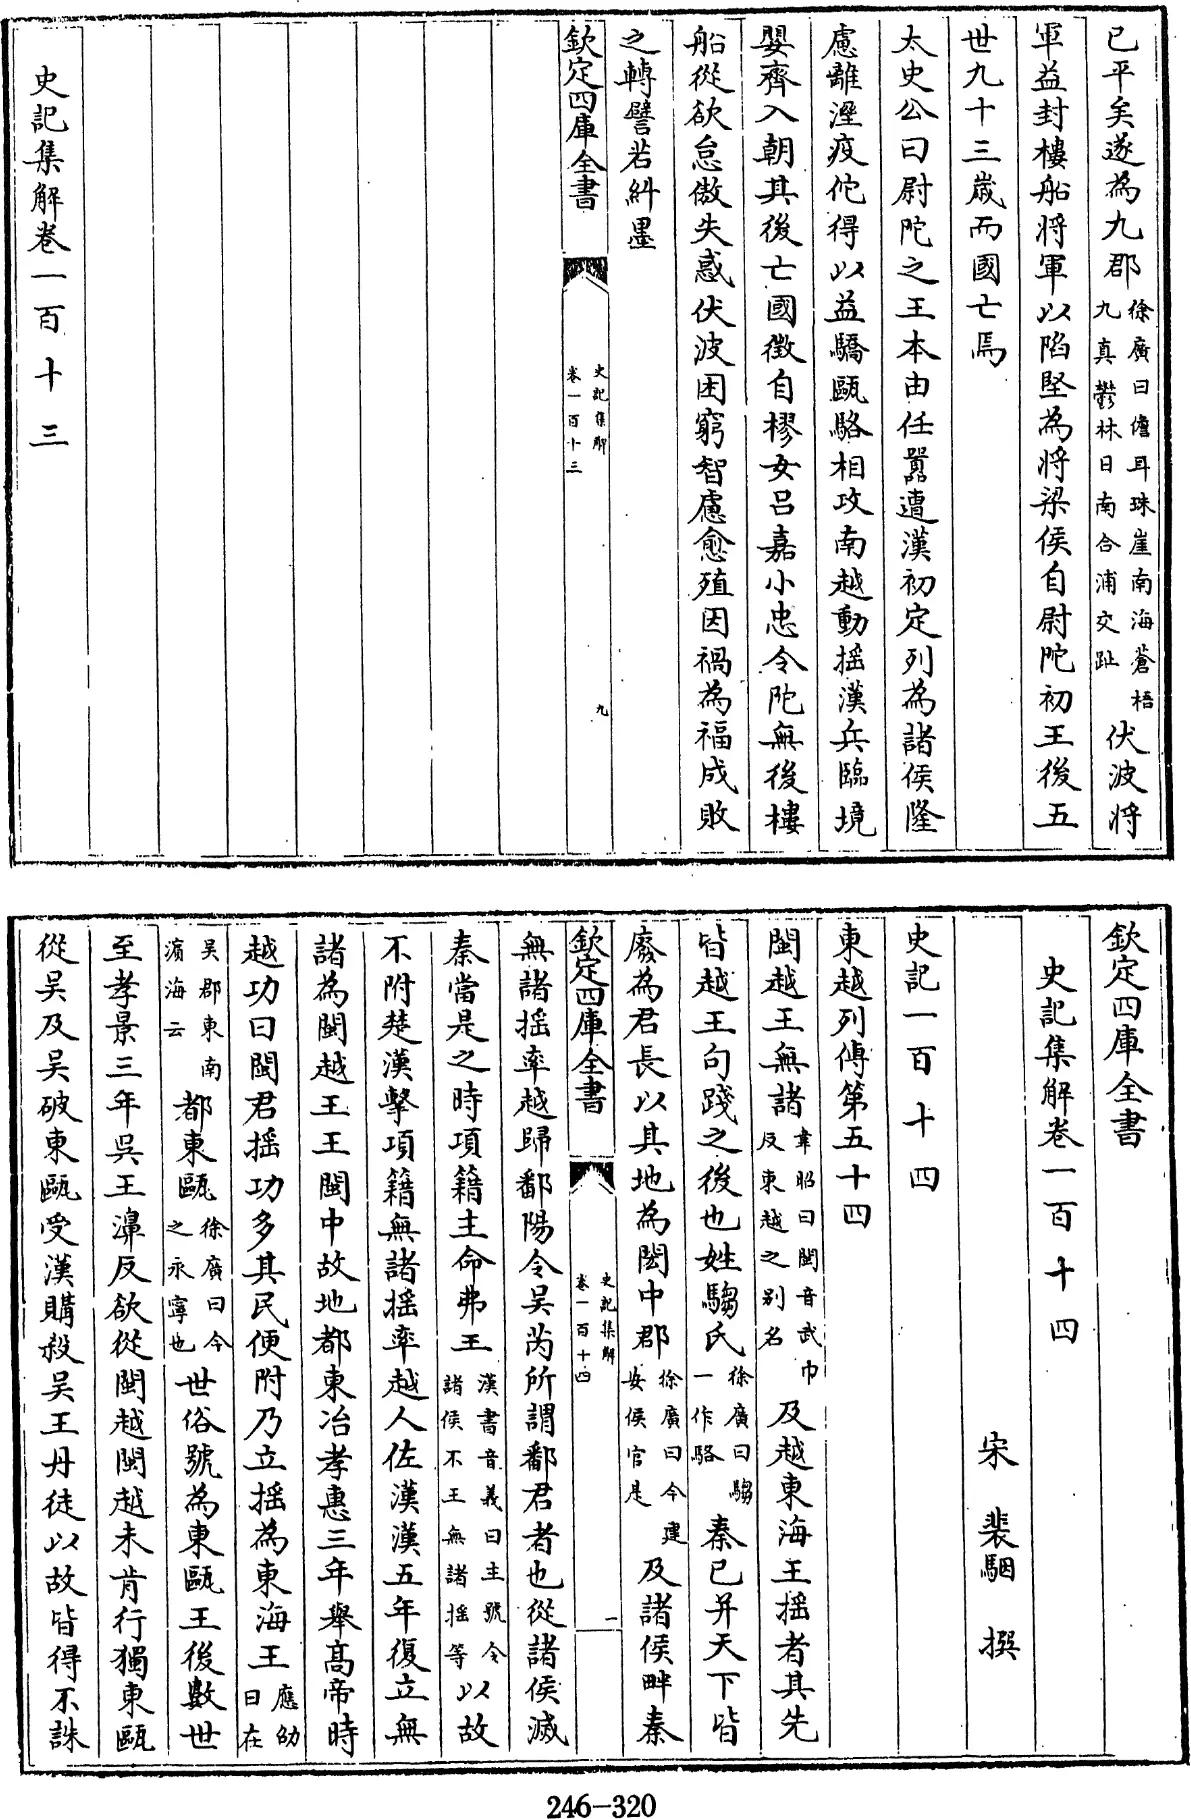 已平矣遂為九郡徐廣曰儋耳珠崖南海蒼梧九真鬱林日南合浦交趾伏波將
軍益封樓船將軍以陷堅為將梁侯自尉陀初王後五
世九十三歲而國亡焉
太史公曰尉陀之王本由任囂遭漢初定列為諸侯隆
慮離溼疫佗得以益驕甌駱相攻南越動揺漢兵臨境
嬰齊入朝其後亡國徵自樛女吕嘉小忠令陀無後樓
船從欲怠傲失惑伏波困窮智慮愈殖因禍為福成敗
之轉譬若糾墨
欽定四庫全書
史記集解
卷一百十三
九
史記集解卷一百十三
欽定四庫全書
史記集解卷一百十四
宋 裴駰 撰
史記一百十四
東越列傳第五十四
閩越王無諸韋昭曰閩音武巾反東越之别名及越東海王揺者其先
皆越王句踐之後也姓騶氏徐廣曰騶一作駱秦已并天下皆
廢為君長以其地為閩中郡徐廣曰今建安侯官是及諸侯畔秦
欽定四庫全書
史記集解
卷一百十四
一
無諸揺率越歸鄱陽令吴芮所謂鄱君者也從諸侯滅
秦當是之時項籍主命弗王漢書音義曰主號令諸侯不王無諸揺等以故
不附楚漢擊項籍無諸揺率越人佐漢漢五年復立無
諸為閩越王王閩中故地都東冶孝惠三年舉髙帝時
越功曰閩君揺功多其民便附乃立揺為東海王應劭曰在
吴郡東南濵海云都東甌徐廣曰今之永寧也世俗號為東甌王後數世
至孝景三年吳王濞反欲從閩越閩越未肯行獨東甌
從吴及吴破東甌受漢購殺吴王丹徒以故皆得不誅
246-320